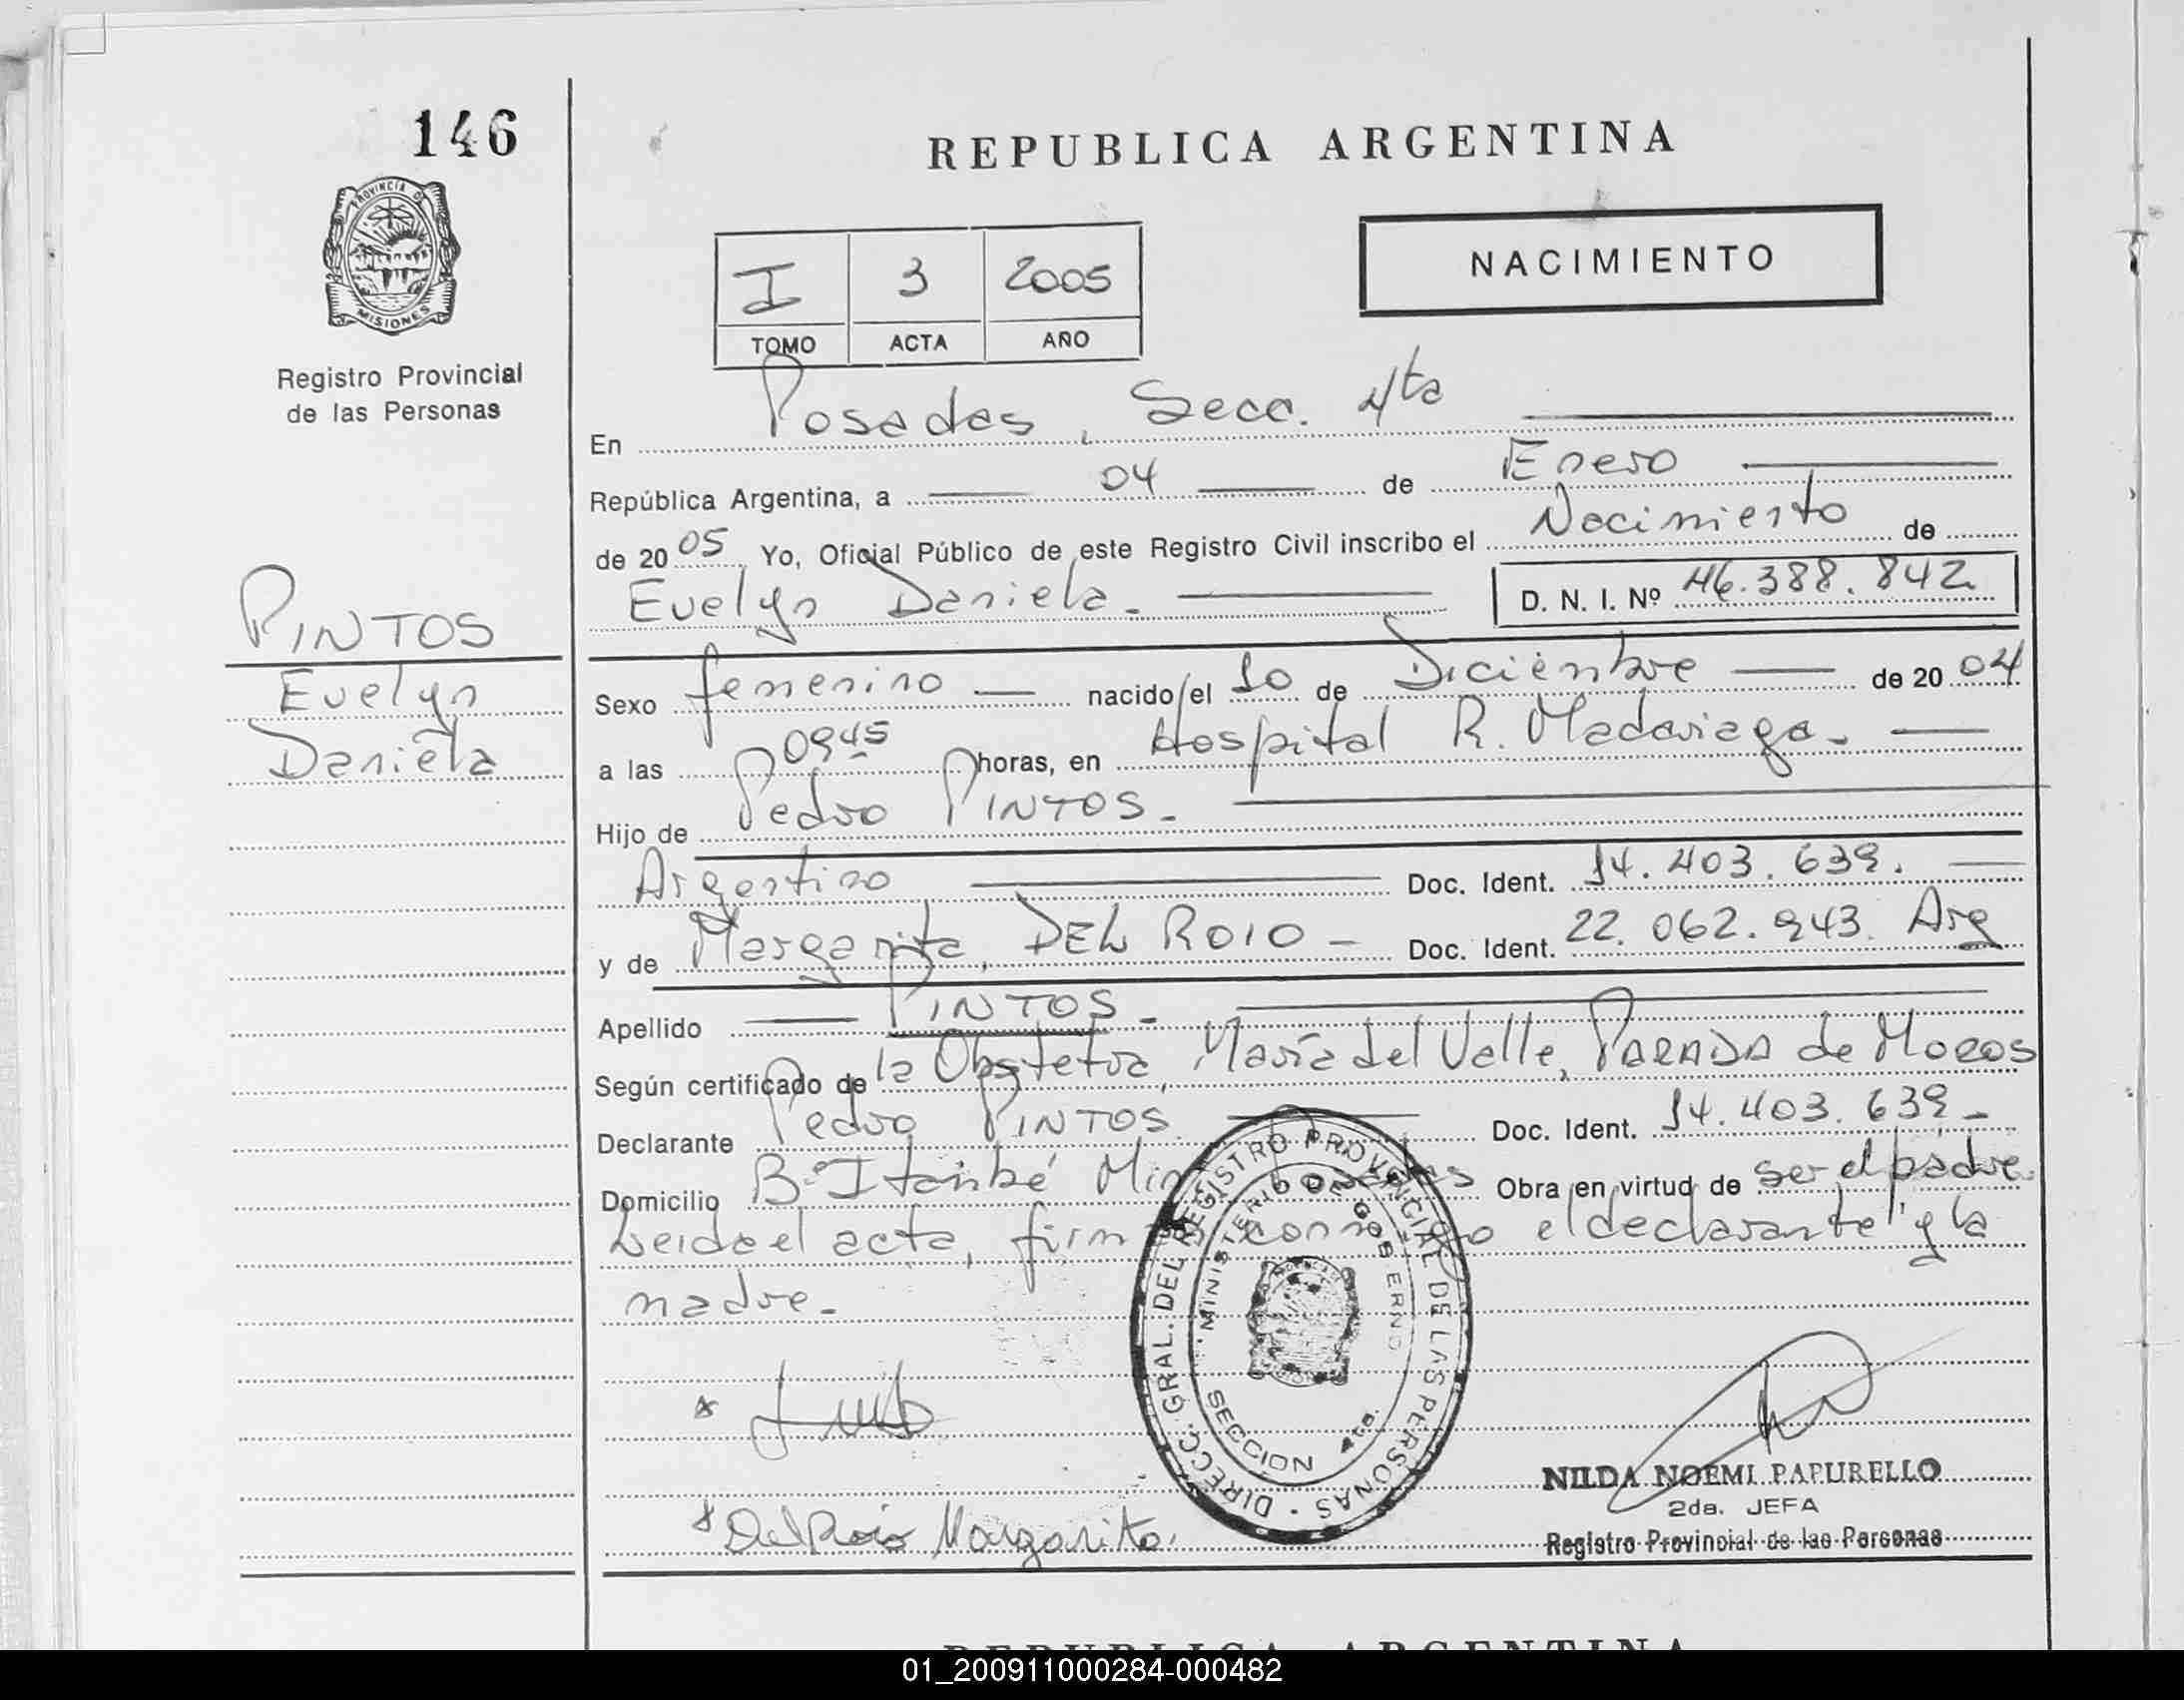 146
REPUBLICA ARGENTINA
PROVINCIA DE
MISIONES
Registro Provincial
de las Personas
NACIMIENTO
I 3 2005
TOMO ACTA AÑO
En Posadas, Secc. 4ta
República Argentina, a 04 de Enero
de 2005 Yo, Oficial Público de este Registro Civil inscribo el Nacimiento de
Evelyn Daniela. D. N. I. Nº 46.388.842
PINTOS
Evelyn
Daniela
Sexo femenino nacido el 10 de Diciembre de 2004
a las 0945 horas, en Hospital R. Madariaga.
Hijo de Pedro PINTOS.
Argentino Doc. Ident. 14.403.639.
y de Margarita, DEL ROIO Doc. Ident. 22.062.943. Arg
Apellido PINTOS.
Según certificado de la Obstetra, María del Valle, PARADA de Moros
Declarante Pedro PINTOS. Doc. Ident. 14.403.639
Domicilio Bº Itambé Miní Obra en virtud de ser el padre.
Leida el acta, firman conmigo el declarante y la
madre.
DIRECC. GRAL. DEL REGISTRO PROVINCIAL DE LAS PERSONAS
MINISTERIO DE GOBIERNO
SECCION 4ta.
Del Roio Margarita.
NILDA NOEMI PAPURELLO
2da. JEFA
Registro Provincial de las Personas
REPUBLICA ARGENTINA
01_200911000284-000482